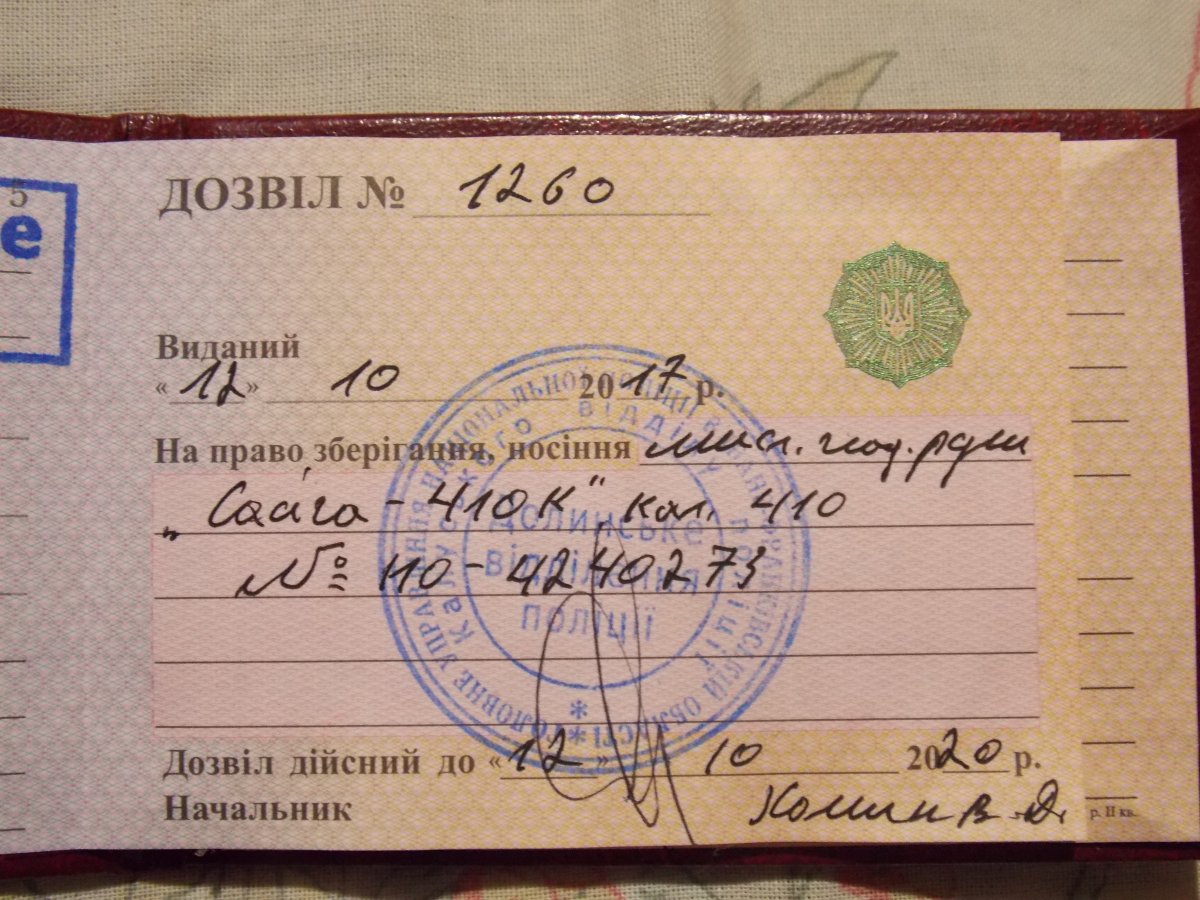 5
е
ДОЗВІЛ № 1260
Виданий
« 12 » 10 2017 р.
На право зберігання, носіння мисл. глад. рушн
„Сайга - 410К" кал. 410
№ Н10-4240273
Дозвіл дійсний до « 12 » 10 2020 р.
Начальник Хомин В.Д.
р. ІІ кв.
ГОЛОВНЕ УПРАВЛІННЯ НАЦІОНАЛЬНОЇ ПОЛІЦІЇ В ІВАНО-ФРАНКІВСЬКІЙ ОБЛАСТІ
Калуського відділу поліції
Долинське
відділення
поліції